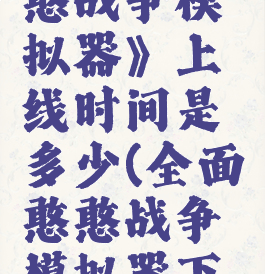 憨战争模
拟器》上
线时间是
多少(全面
憨憨战争
模拟器下